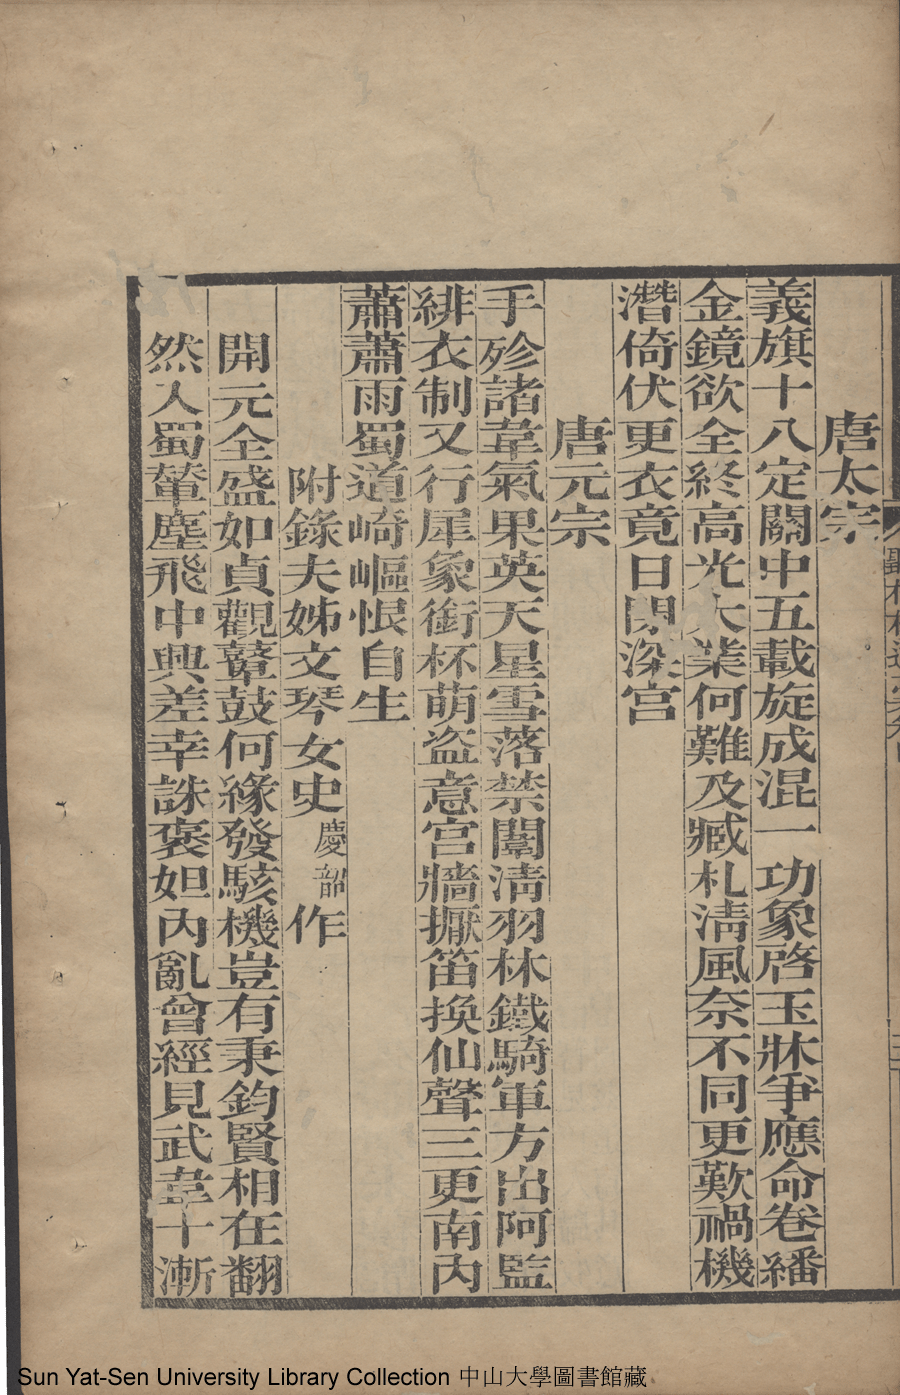 唐太宗
義旗十八定關中五載旋成混一功象啓玉牀爭應命卷繙
金鏡欲全終高光大業何難及臧札淸風奈不同更歎禍機
潛倚伏更衣竟日閉深宮
唐元宗
手殄諸韋氣果英天星雪落禁闈淸羽林鐵騎軍方出阿監
緋衣制又行犀象銜杯萌盜意宮牆擫笛換仙聲三更南內
蕭蕭雨蜀道崎嶇恨自生
附錄夫姊文琴女史慶韶作
開元全盛如貞觀鼙鼓何緣發駭機豈有秉鈞賢相在翻
然入蜀輦塵飛中興差幸誅褒妲內亂曾經見武韋十漸
Sun Yat-Sen University Library Collection 中山大學圖書館藏